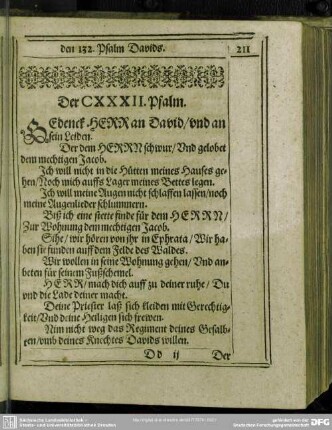 den 132. Psalm Davids.
211
Der CXXXII. Psalm.
GEdenck HERR an David/vnd an
sein Leiden.
Der dem HERRN schwur/Vnd gelobet
dem mechtigen Jacob.
Ich will nicht in die Hütten meines Hauses ge-
hen/Noch mich auffs Lager meines Bettes legen.
Ich will meine Augen nicht schlaffen lassen/noch
meine Augenlieder schlummern.
Biß ich eine stette finde für dem HERRN/
Zur Wohnung dem mechtigen Jacob.
Sihe/wir hören von jhr in Ephrata/Wir ha-
ben sie funden auff dem Felde des Waldes.
Wir wollen in seine Wohnung gehen/Vnd an-
beten für seinem Fußschemel.
HERR/mach dich auff zu deiner ruhe/Du
vnd die Lade deiner macht.
Deine Priester laß sich kleiden mit Gerechtig-
keit/Vnd deine Heiligen sich frewen.
Nim nicht weg das Regiment deines Gesalb-
ten/vmb deines Knechtes Davids willen.
D d ij
Der